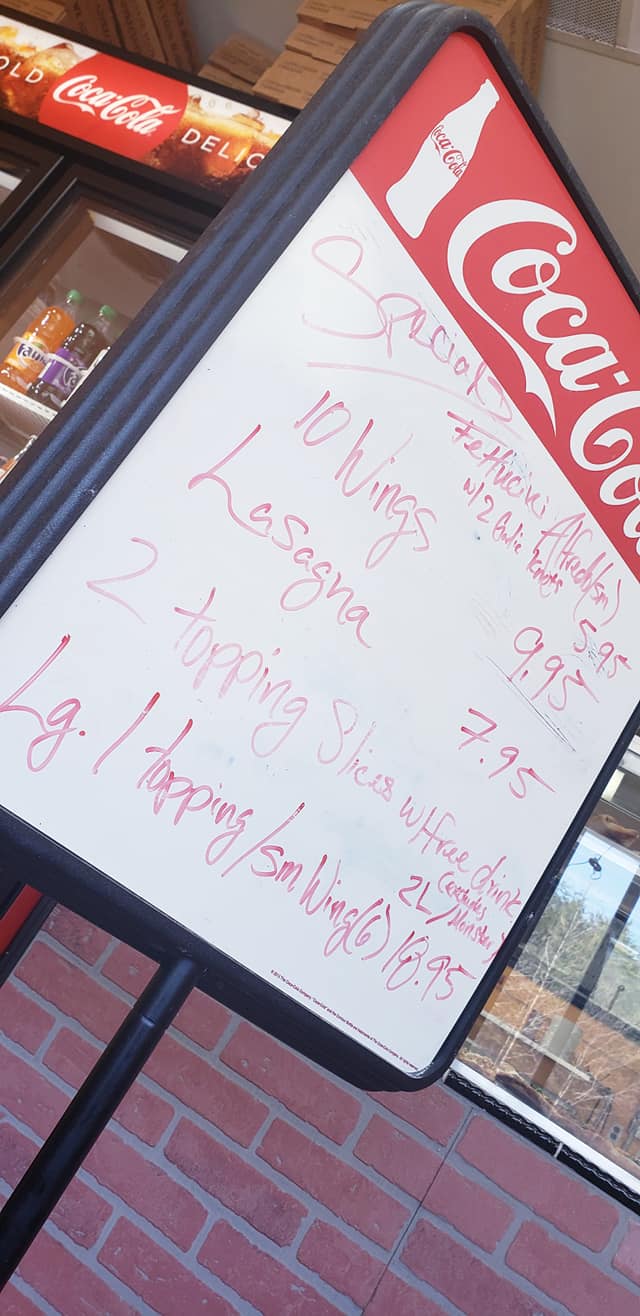 OLD
Coca-Cola
DELIC
Coca-Cola
Coca-Co
Fanta
Specials
Fettucini Alfredo (sm)
w/ 2 Garlic knots
5.95
10 Wings
9.95
Lasagna
7.95
2 topping Slices w/free drink
(excludes
2L/Monster)
Lg. 1 topping/sm Wing(6) 18.95